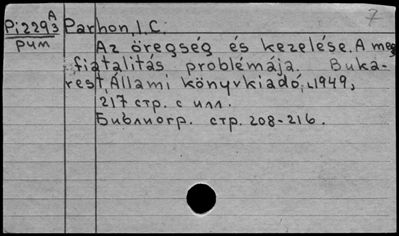 7
Рi2293 A/3 Parhon, I.C.
рум Az öregség és kezelése. A meg
fiatalitás problémája. Buka-
rest, Állami könyvkiadó, 1949,
217 стр. с илл.
Библиогр. стр. 208-216.